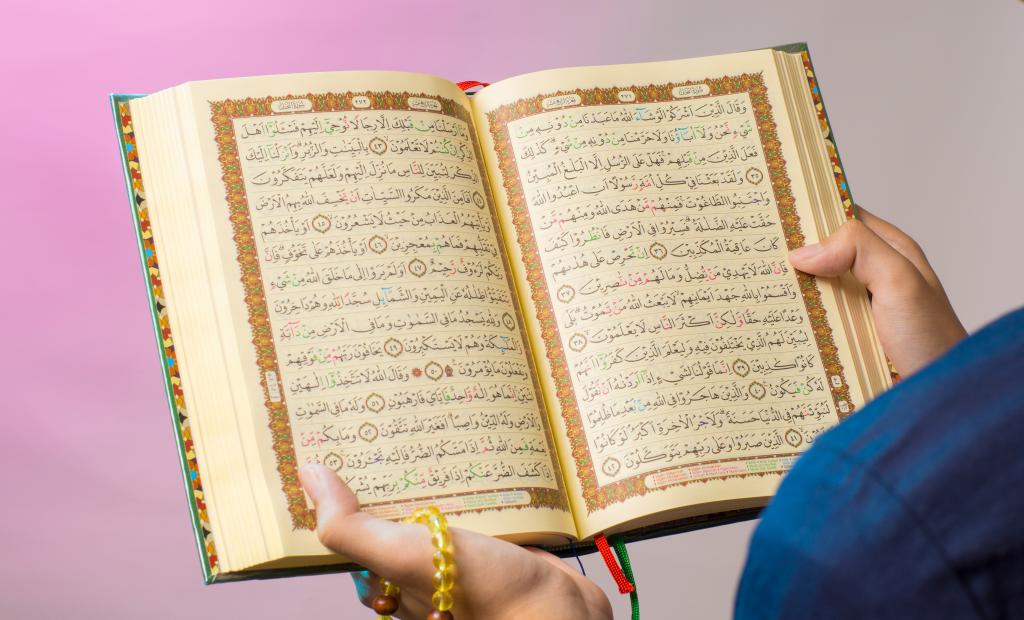 الجزء الرابع عشر ٢٧١ سورة النحل
وَقَالَ الَّذِينَ أَشْرَكُوا لَوْ شَآءَ اللَّهُ مَا عَبَدْنَا مِن دُونِهِ مِن
شَيْءٍ نَّحْنُ وَلَآ ءَابَآؤُنَا وَلَا حَرَّمْنَا مِن دُونِهِ مِن شَيْءٍ كَذَٰلِكَ
فَعَلَ الَّذِينَ مِن قَبْلِهِمْ فَهَلْ عَلَى الرُّسُلِ إِلَّا الْبَلَٰغُ الْمُبِينُ
٣٥ وَلَقَدْ بَعَثْنَا فِي كُلِّ أُمَّةٍ رَّسُولًا أَنِ اعْبُدُوا اللَّهَ
وَاجْتَنِبُوا الطَّٰغُوتَ فَمِنْهُم مَّنْ هَدَى اللَّهُ وَمِنْهُم مَّنْ
حَقَّتْ عَلَيْهِ الضَّلَٰلَةُ فَسِيرُوا فِي الْأَرْضِ فَانظُرُوا كَيْفَ
كَانَ عَٰقِبَةُ الْمُكَذِّبِينَ ٣٦ إِن تَحْرِصْ عَلَىٰ هُدَىٰهُمْ
فَإِنَّ اللَّهَ لَا يَهْدِي مَن يُضِلُّ وَمَا لَهُم مِّن نَّٰصِرِينَ ٣٧
وَأَقْسَمُوا بِاللَّهِ جَهْدَ أَيْمَٰنِهِمْ لَا يَبْعَثُ اللَّهُ مَن يَمُوتُ بَلَىٰ
وَعْدًا عَلَيْهِ حَقًّا وَلَٰكِنَّ أَكْثَرَ النَّاسِ لَا يَعْلَمُونَ ٣٨
لِيُبَيِّنَ لَهُمُ الَّذِي يَخْتَلِفُونَ فِيهِ وَلِيَعْلَمَ الَّذِينَ كَفَرُوا أَنَّهُمْ
كَانُوا كَٰذِبِينَ ٣٩ إِنَّمَا قَوْلُنَا لِشَيْءٍ إِذَآ أَرَدْنَٰهُ أَن نَّقُولَ
لَهُ كُن فَيَكُونُ ٤٠ وَالَّذِينَ هَاجَرُوا فِي اللَّهِ مِن بَعْدِ مَا ظُلِمُوا
لَنُبَوِّئَنَّهُمْ فِي الدُّنْيَا حَسَنَةً وَلَأَجْرُ الْءَاخِرَةِ أَكْبَرُ لَوْ كَانُوا
٤١ الَّذِينَ صَبَرُوا وَعَلَىٰ رَبِّهِمْ يَتَوَكَّلُونَ ٤٢
الجزء الرابع عشر ٢٧٢ سورة النحل
وَمَآ أَرْسَلْنَا مِن قَبْلِكَ إِلَّا رِجَالًا نُّوحِيٓ إِلَيْهِمْ فَسْـَٔلُوٓا أَهْلَ
الذِّكْرِ إِن كُنتُمْ لَا تَعْلَمُونَ ٤٣ بِالْبَيِّنَٰتِ وَالزُّبُرِ وَأَنزَلْنَآ إِلَيْكَ
الذِّكْرَ لِتُبَيِّنَ لِلنَّاسِ مَا نُزِّلَ إِلَيْهِمْ وَلَعَلَّهُمْ يَتَفَكَّرُونَ
٤٤ أَفَأَمِنَ الَّذِينَ مَكَرُوا السَّيِّـَٔاتِ أَن يَخْسِفَ اللَّهُ بِهِمُ الْأَرْضَ
أَوْ يَأْتِيَهُمُ الْعَذَابُ مِنْ حَيْثُ لَا يَشْعُرُونَ ٤٥ أَوْ يَأْخُذَهُمْ
فِي تَقَلُّبِهِمْ فَمَا هُم بِمُعْجِزِينَ ٤٦ أَوْ يَأْخُذَهُمْ عَلَىٰ تَخَوُّفٍ فَإِنَّ
رَبَّكُمْ لَرَءُوفٌ رَّحِيمٌ ٤٧ أَوَلَمْ يَرَوْا إِلَىٰ مَا خَلَقَ اللَّهُ مِن شَيْءٍ
يَتَفَيَّؤُا ظِلَٰلُهُ عَنِ الْيَمِينِ وَالشَّمَآئِلِ سُجَّدًا لِّلَّهِ وَهُمْ دَٰخِرُونَ
٤٨ وَلِلَّهِ يَسْجُدُ مَا فِي السَّمَٰوَٰتِ وَمَا فِي الْأَرْضِ مِن دَآبَّةٍ
وَالْمَلَٰٓئِكَةُ وَهُمْ لَا يَسْتَكْبِرُونَ ٤٩ يَخَافُونَ رَبَّهُم مِّن فَوْقِهِمْ
وَيَفْعَلُونَ مَا يُؤْمَرُونَ ٥٠ وَقَالَ اللَّهُ لَا تَتَّخِذُوٓا إِلَٰهَيْنِ
اثْنَيْنِ إِنَّمَا هُوَ إِلَٰهٌ وَٰحِدٌ فَإِيَّٰيَ فَارْهَبُونِ ٥١ وَلَهُ مَا فِي السَّمَٰوَٰتِ
وَالْأَرْضِ وَلَهُ الدِّينُ وَاصِبًا أَفَغَيْرَ اللَّهِ تَتَّقُونَ ٥٢ وَمَا بِكُم مِّن
نِّعْمَةٍ فَمِنَ اللَّهِ ثُمَّ إِذَا مَسَّكُمُ الضُّرُّ فَإِلَيْهِ تَجْـَٔرُونَ
إِذَا كَشَفَ الضُّرَّ عَنكُمْ إِذَا فَرِيقٌ مِّنكُم بِرَبِّهِمْ يُشْرِكُونَ